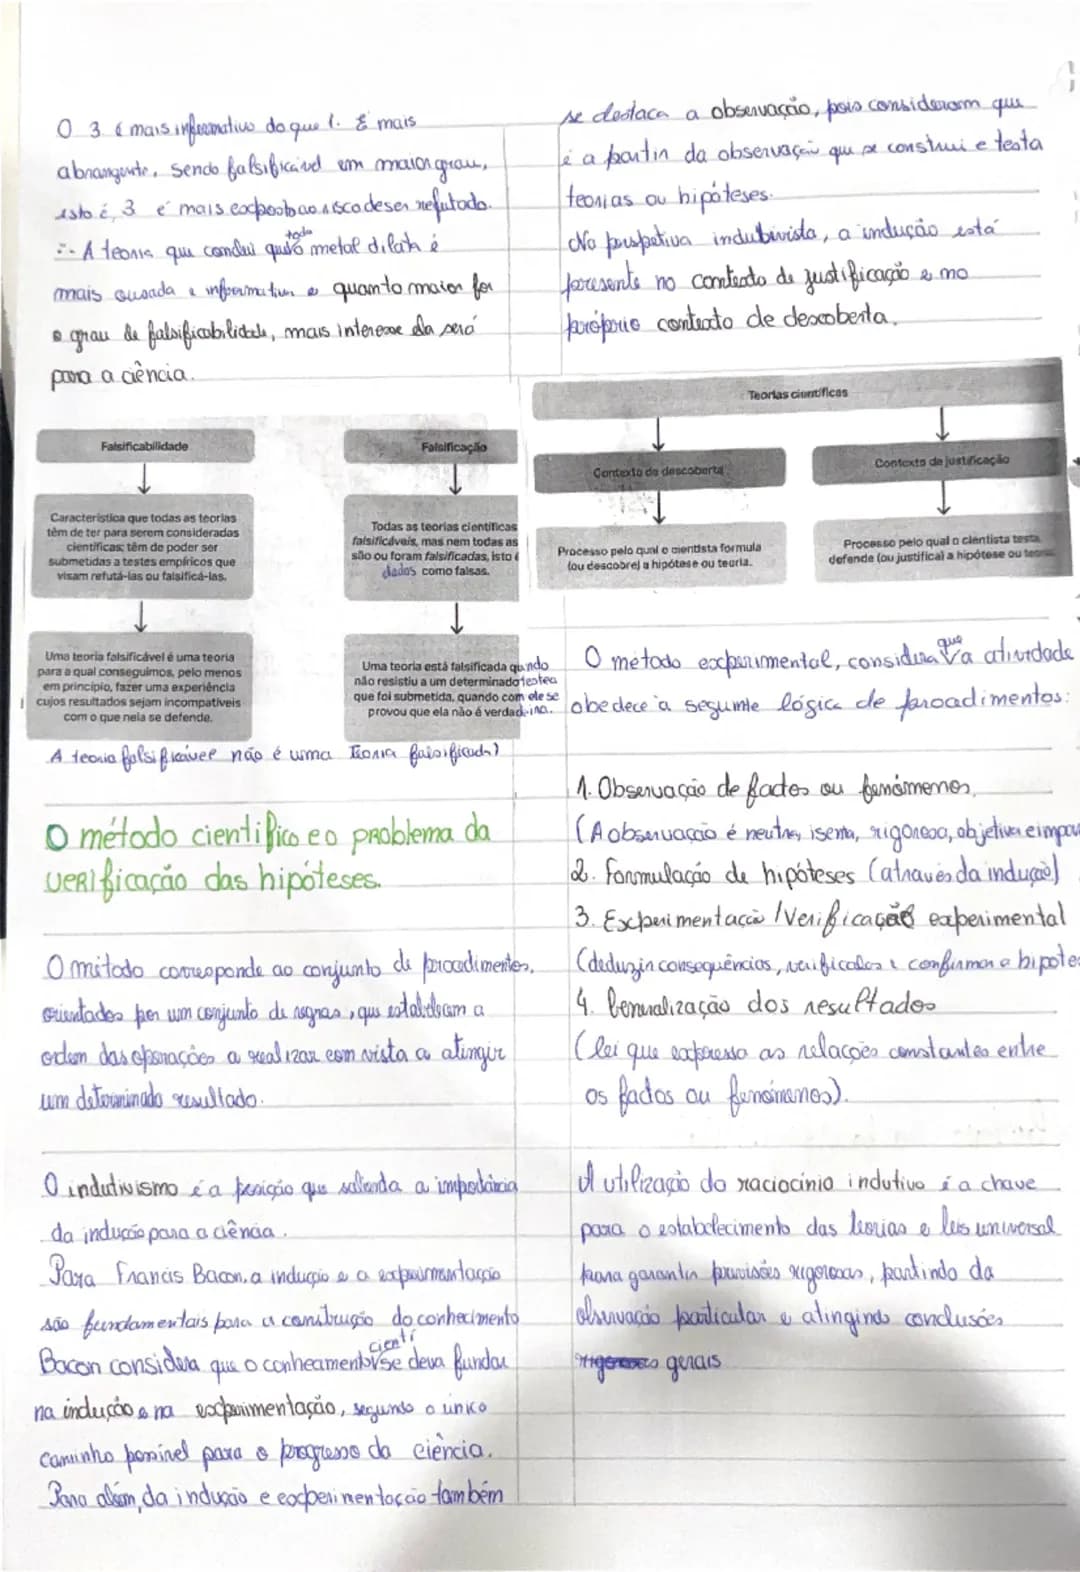 O 3 é mais informativo do que 1. É mais
abrangente, sendo falsificável em maior grau,
isto é, 3 é mais exposto ao risco de ser refutado.
∴ A teoria que conclui que todo o metal dilata é
mais ousada e informativa e quanto maior for
o grau de falsificabilidade, mais interesse ela será
para a ciência.
Falsificabilidade
Característica que todas as teorias
têm de ter para serem consideradas
científicas; têm de poder ser
submetidas a testes empíricos que
visam refutá-las ou falsificá-las.
Uma teoria falsificável é uma teoria
para a qual conseguimos, pelo menos
em princípio, fazer uma experiência
cujos resultados sejam incompatíveis
com o que nela se defende.
Falsificação
Todas as teorias científicas
falsificáveis, mas nem todas as
são ou foram falsificadas, isto é
dadas como falsas.
Uma teoria está falsificada quando
não resistiu a um determinado teste a
que foi submetida, quando com ele se
provou que ela não é verdadeira.
A teoria falsificável não é uma teoria falsificada!
O método científico e o problema da
verificação das hipóteses.
O método corresponde ao conjunto de procedimentos,
orientados por um conjunto de regras, que estabelecem a
ordem das operações a realizar com vista a atingir
um determinado resultado.
O indutivismo é a posição que salienta a importância
da indução para a ciência.
Para Francis Bacon, a indução e a experimentação
são fundamentais para a construção do conhecimento
Bacon considera que o conhecimento cientí se deva fundar
na indução e na experimentação, segundo o único
caminho possível para o progresso da ciência.
Para além, da indução e experimentação também
se destaca a observação, pois consideram que
é a partir da observação que se construi e testa
teorias ou hipóteses.
Na perspetiva indutivista, a indução está
presente no contexto de justificação e no
próprio contexto de descoberta.
Teorias científicas
Contexto de descoberta
Processo pelo qual o cientista formula
(ou descobre) a hipótese ou teoria.
Contexto de justificação
Processo pelo qual o cientista testa
defende (ou justifica) a hipótese ou
O método experimental, considera que a atividade
obedece à seguinte lógica de procedimentos:
1. Observação de factos ou fenómenos.
(A observação é neutra, isenta, rigorosa, objetiva e
2. Formulação de hipóteses (através da indução)
3. Experimentação / Verificação experimental
(deduzir consequências, verificalos e confirmar a
4. Generalização dos resultados
(lei que expressa as relações constantes entre
os factos ou fenómenos).
A utilização do raciocínio indutivo é a chave
para o estabelecimento das teorias e leis universal
para garantir previsões rigorosas, partindo da
observação particular e atingindo conclusões
gerais